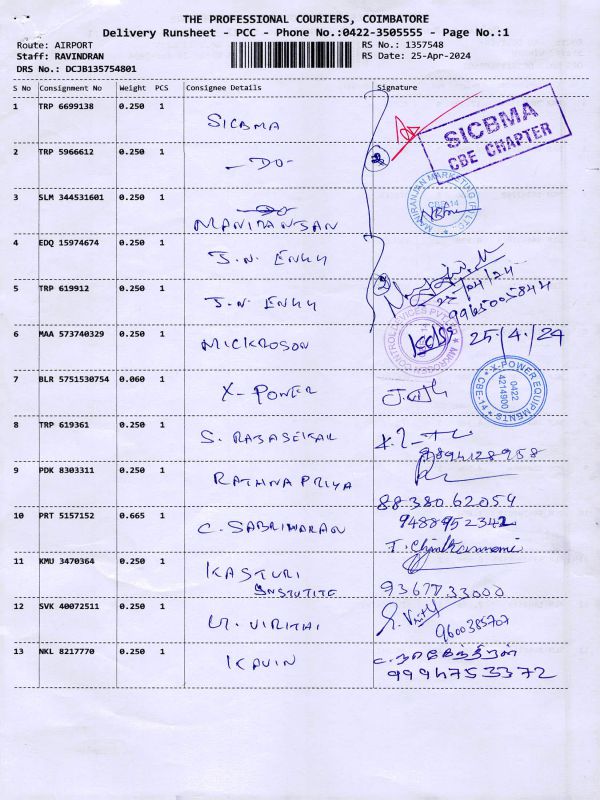 THE PROFESSIONAL COURIERS, COIMBATORE
Delivery Runsheet - PCC - Phone No.:0422-3505555 - Page No.:1
Route: AIRPORT RS No.: 1357548
Staff: RAVINDRAN RS Date: 25-Apr-2024
DRS No.: DCJB135754801
S No Consignment No Weight PCS Consignee Details Signature
1 TRP 6699138 0.250 1 SICBMA
SICBMA
CBE CHAPTER
2 TRP 5966612 0.250 1 -DO-
3 SLM 344531601 0.250 1
MANIRANJAN MARKETING (P) LTD.
CBE-14
4 EDQ 15974674 0.250 1 J.N. ENGG
25/04/24
9965005844
5 TRP 619912 0.250 1 J.N ENGG
6 MAA 573740329 0.250 1 MICKROSON 25/4/24
7 BLR 5751530754 0.060 1 X-POWER
X-POWER EQUIPMENTS
0422
4214900
CBE-14
8 TRP 619361 0.250 1 S. RAJASEKAR
9894128958
9 PDK 8303311 0.250 1 RATHNA PRIYA
88380 62054
10 PRT 5157152 0.665 1 C. SABRIWARAN 9488952342
11 KMU 3470364 0.250 1 KASTURI
INSTUTITE 9367733000
12 SVK 40072511 0.250 1
9600385707
13 NKL 8217770 0.250 1 KAVIN
9994753372